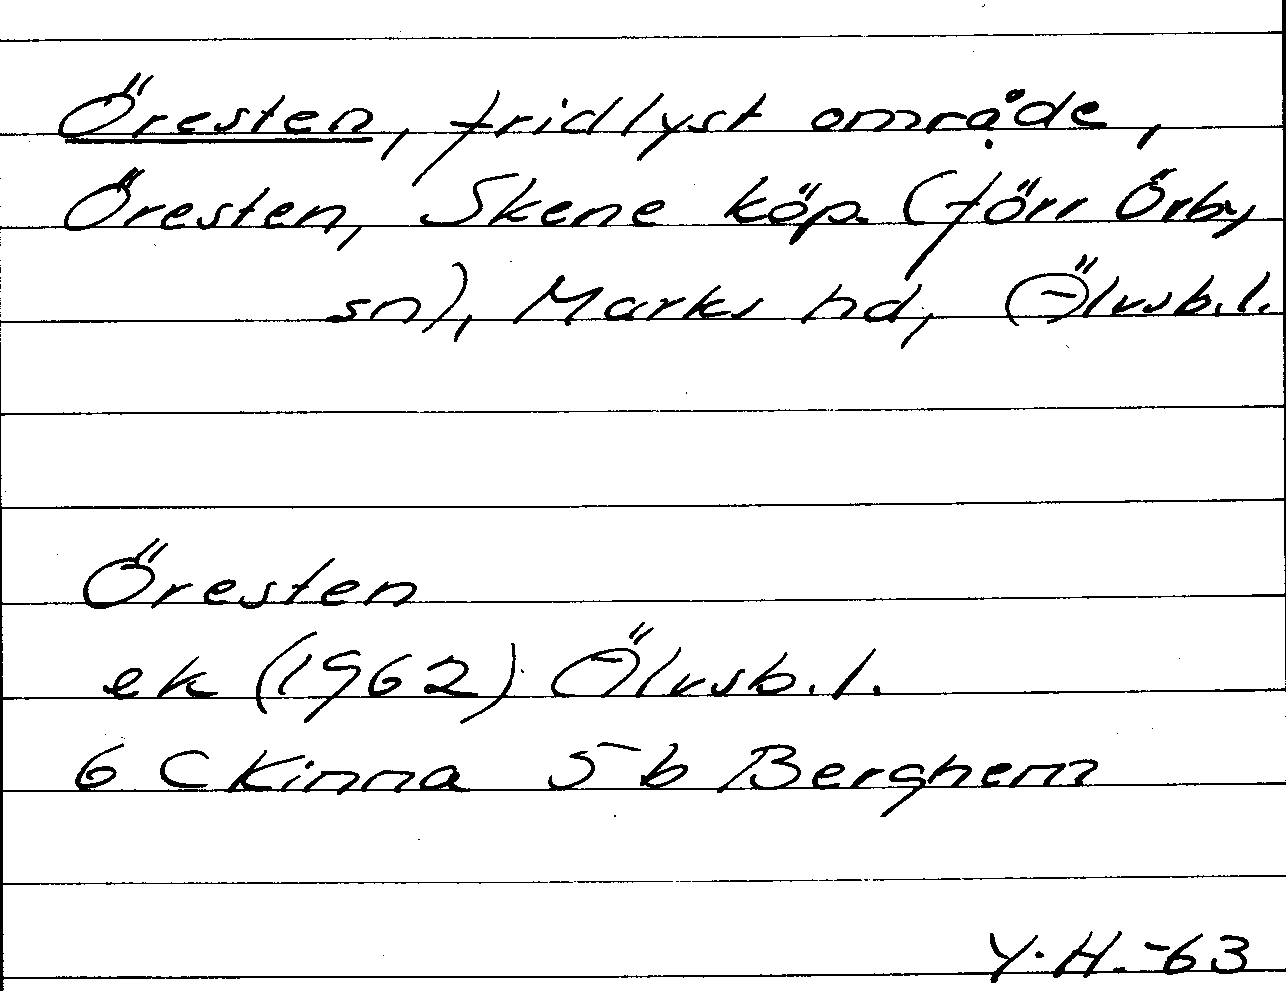 Öresten, fridlyst område,
Öresten, Skene köp. (förr Örby
sn), Marks hd, Älvsb.l.
Öresten
ek (1962) Älvsb.l.
6 C Kinna 5 b Berghem
Y.H.-63